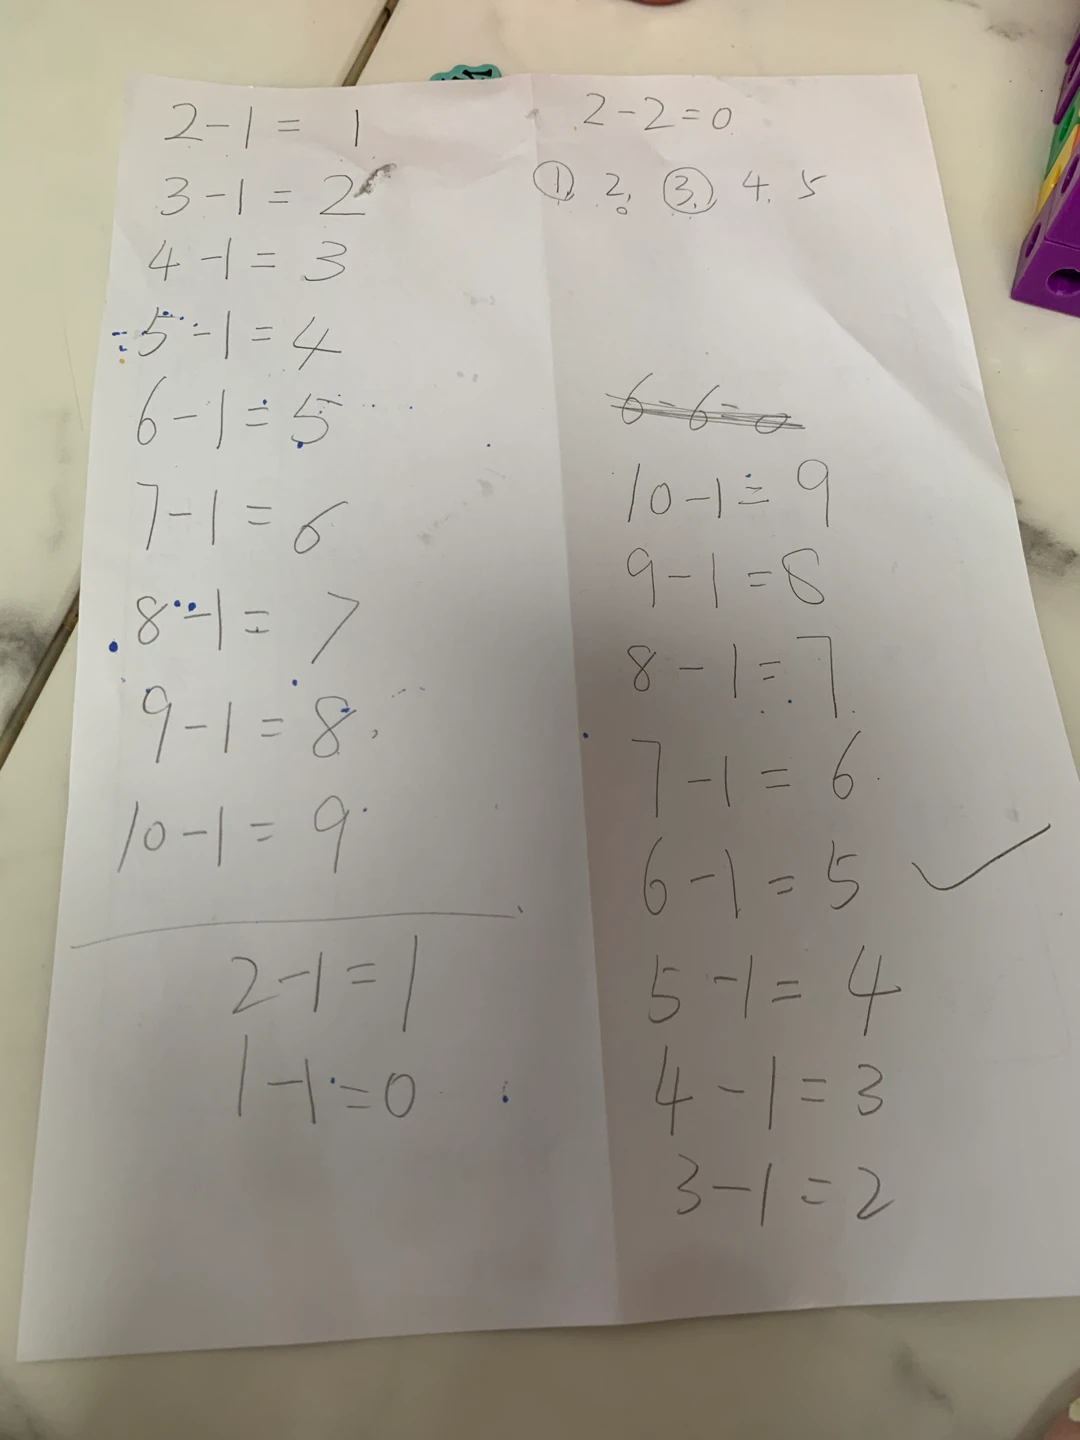 2-1= 1
3-1=2
4-1=3
5-1=4
6-1=5
7-1=6
8-1=7
9-1=8
10-1=9
2-1=1
1-1=0
2-2=0
① 2. ③ 4. 5
6-6=0
10-1=9
9-1=8
8-1=7
7-1=6
6-1=5
5-1=4
4-1=3
3-1=2